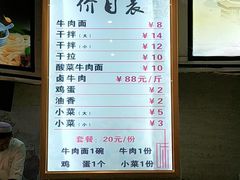 价目表
牛肉面 ¥8
干拌（大） ¥14
干拌（小） ¥12
干拉 ¥10
酸菜牛肉面 ¥10
卤牛肉 ¥88元/斤
鸡蛋 ¥2
油香 ¥2
小菜（大） ¥5
小菜（小） ¥3
套餐：20元/份
牛肉面1碗 牛肉1份
鸡蛋1个 小菜1份